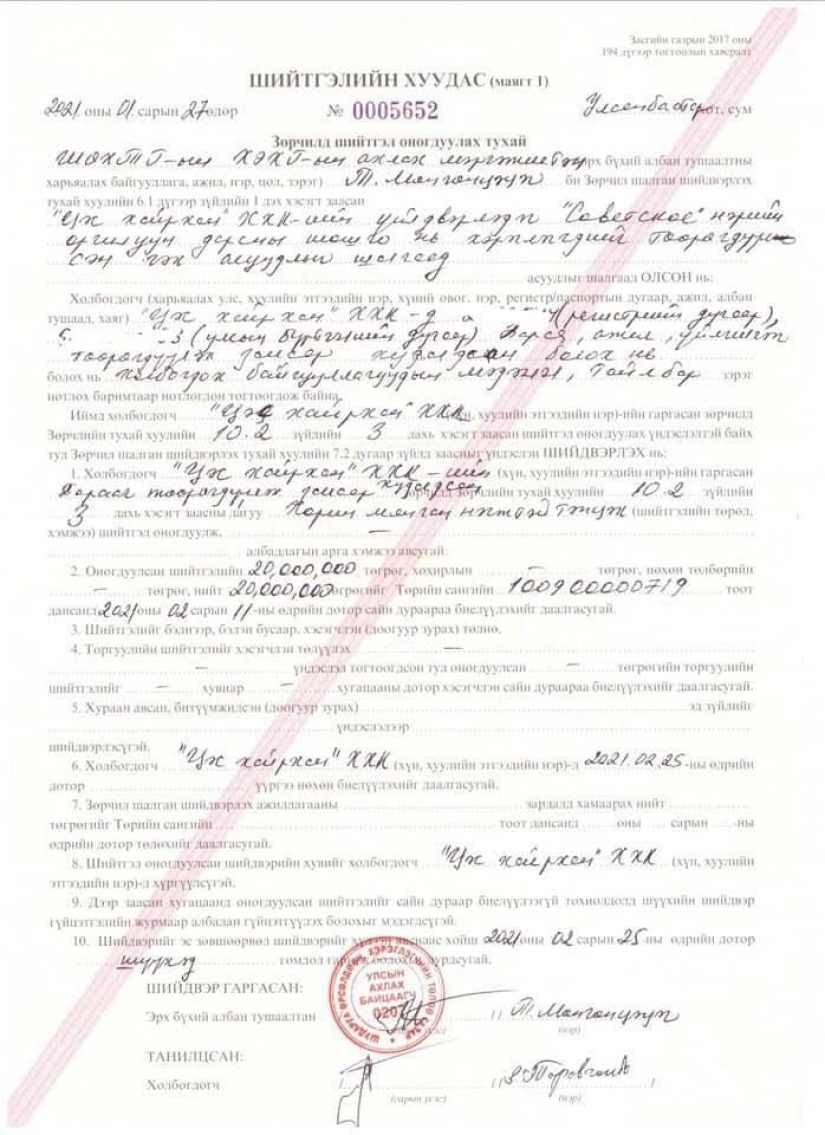 Засгийн газрын 2017 оны
194 дүгээр тогтоолын хавсралт
ШИЙТГЭЛИЙН ХУУДАС (маягт 1)
2021 оны 01 сарын 27 өдөр № 0005652 Улаанбаатар хот, сум
Зөрчилд шийтгэл оногдуулах тухай
ШӨХТГ-ын ХЭХГ-ын ахлах мэргэжилтэн (эрх бүхий албан тушаалтны
харьяалах байгууллага, ажил, нэр, цол, зэрэг) Т. Мөнгөнцэцэг би Зөрчил шалган шийдвэрлэх
тухай хуулийн 6.1 дүгээр зүйлийн 1 дэх хэсэгт заасан
хайрхан" ХХК-ийн үйлдвэрлэдэг "Советское" нэрийн
оргилуун дарсны шошго нь хэрэглэгчдийг төөрөгдүүл
сэн гэх асуудлыг шалгаад
асуудлыг шалгаад ОЛСОН нь:
Холбогдогч (харьяалах улс, хуулийн этгээдийн нэр, хүний овог, нэр, регистр/паспортын дугаар, ажил, албан
тушаал, хаяг) хайрхан" ХХК-д (регистрийн дугаар),
3 (улсын бүртгэлийн дугаар) Бараа, ажил, үйлчилгээг
төөрөгдүүлж замаар худалдсан болох нь
болох нь холбогдох байгууллагуудын мэдээлэл, тайлбар зэрэг
нотлох баримтаар нотлогдон тогтоогдож байна.
Иймд холбогдогч хайрхан" ХХК (хүн, хуулийн этгээдийн нэр)-ийн гаргасан зөрчилд
Зөрчлийн тухай хуулийн 10.2 зүйлийн 3 дахь хэсэгт заасан шийтгэл оногдуулах үндэслэлтэй байх
тул Зөрчил шалган шийдвэрлэх тухай хуулийн 7.2 дугаар зүйлд заасныг үндэслэн ШИЙДВЭРЛЭХ нь:
1. Холбогдогч хайрхан" ХХК-ийн (хүн, хуулийн этгээдийн нэр)-ийн гаргасан
Барааг төөрөгдүүлж замаар худалдсан зөрчилд Зөрчлийн тухай хуулийн 10.2 зүйлийн
3 дахь хэсэгт заасны дагуу Хорин мянган нэгжтэй тэнцэх (шийтгэлийн төрөл,
хэмжээ) шийтгэл оногдуулж, —
албадлагын арга хэмжээ авсугай.
2. Оногдуулсан шийтгэлийн 20,000,000 төгрөг, хохирлын — төгрөг, нөхөн төлбөрийн
— төгрөг, нийт 20,000,000 төгрөгийг Төрийн сангийн 100900000719 тоот
дансанд 2021 оны 02 сарын 11-ны өдрийн дотор сайн дураараа биелүүлэхийг даалгасугай.
3. Шийтгэлийг бэлнээр, бэлэн бусаар, хэсэгчлэн (доогуур зурах) төлнө.
4. Торгуулийн шийтгэлийг хэсэгчлэн төлүүлэх —
— үндэслэл тогтоогдсон тул оногдуулсан — төгрөгийн торгуулийн
шийтгэлийг — хувиар — хугацааны дотор хэсэгчлэн сайн дураараа биелүүлэхийг даалгасугай.
5. Хураан авсан, битүүмжилсэн (доогуур зурах) эд зүйлийг
үндэслэлээр
шийдвэрлэсүгэй.
6. Холбогдогч хайрхан" ХХК (хүн, хуулийн этгээдийн нэр)-д 2021.02.25-ны өдрийн
дотор үүргээ нөхөн биелүүлэхийг даалгасугай.
7. Зөрчил шалган шийдвэрлэх ажиллагааны зардалд хамаарах нийт
төгрөгийг Төрийн сангийн тоот дансанд оны сарын -ны
өдрийн дотор төлөхийг даалгасугай.
8. Шийтгэл оногдуулсан шийдвэрийн хувийг холбогдогч хайрхан" ХХК (хүн, хуулийн
этгээдийн нэр)-д хүргүүлсүгэй.
9. Дээр заасан хугацаанд оногдуулсан шийтгэлийг сайн дураар биелүүлээгүй тохиолдолд шүүхийн шийдвэр
гүйцэтгэлийн журмаар албадан гүйцэтгүүлэх болохыг мэдэгдсүгэй.
10. Шийдвэрийг эс зөвшөөрвөл шийдвэрийг хүлээн авснаас хойш 2021 оны 02 сарын 25-ны өдрийн дотор
шүүхэд гомдол гаргаж болохыг дурдсугай.
ШИЙДВЭР ГАРГАСАН:
УЛСЫН
АХЛАХ
БАЙЦААГЧ
0207
Эрх бүхий албан тушаалтан / / Т. Мөнгөнцэцэг
(гарын үсэг) (нэр)
ТАНИЛЦСАН:
Холбогдогч / / /
(гарын үсэг) (нэр)